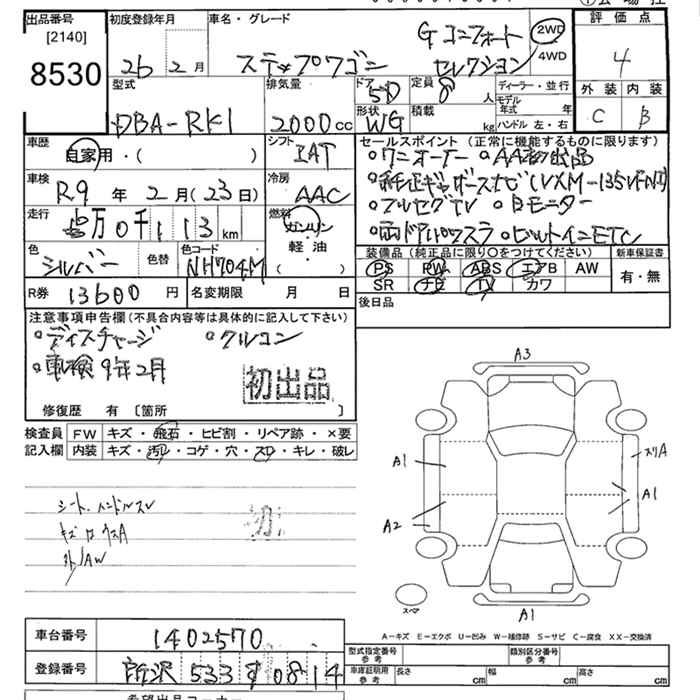 出品番号
[2140]
8530
初度登録年月
26 2月
車名・グレード
ステップワゴン
Gコンフォート
セレクション
2WD
4WD
評価点
4
外装 内装
C B
型式
DBA-RK1
排気量
2000cc
ドア
5D
形状
WG
定員
8人
積載
kg
ディーラー・並行
モデル年式 年
ハンドル 左・右
車歴
自家用・( )
シフト
IAT
車検
R9年2月(23日)
冷房
AAC
走行
万0千113km
燃料
ガソリン
軽油
( )
色
シルバー
色替
色コード
NH704M
R券 13600円
名変期限 月 日
セールスポイント(正常に機能するものに限ります)
・ワンオーナー ・AA初出品
・純正ギャザースナビ(VXM-135VFNI)
・フルセグTV ・Bモニター
・両ドアパワスラ ・ビルトインETC
装備品(純正品に限り○をつけてください)
PS PW ABS エアB AW
SR ナビ TV カワ
新車保証書
有・無
後日品
注意事項申告欄(不具合内容等は具体的に記入して下さい)
・ディスチャージ ・クルコン
・車検9年2月
初出品
修復歴 有 〔箇所 〕
検査員記入欄
FW キズ・飛石・ヒビ割・リペア跡・×要
内装 キズ・汚レ・コゲ・穴・スレ・キレ・破レ
シート、ハンドルスレ
キズ
A3
A1
A2
スリA
A1
A1
スペア
A-キズ E-エクボ U-凹み W-補修跡 S-サビ C-腐食 XX-交換済
車台番号
1402570
登録番号
所沢 533 す 0814
型式指定番号
参考
類別区分番号
参考
車庫証明用
参考
長さ cm 幅 cm 高さ cm
希望出品コーナー